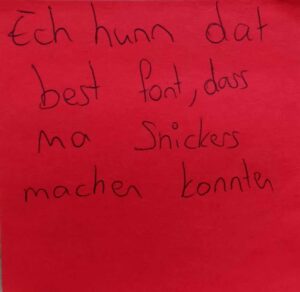 Ech hunn dat
best font, dass
ma Snickers
machen konnten